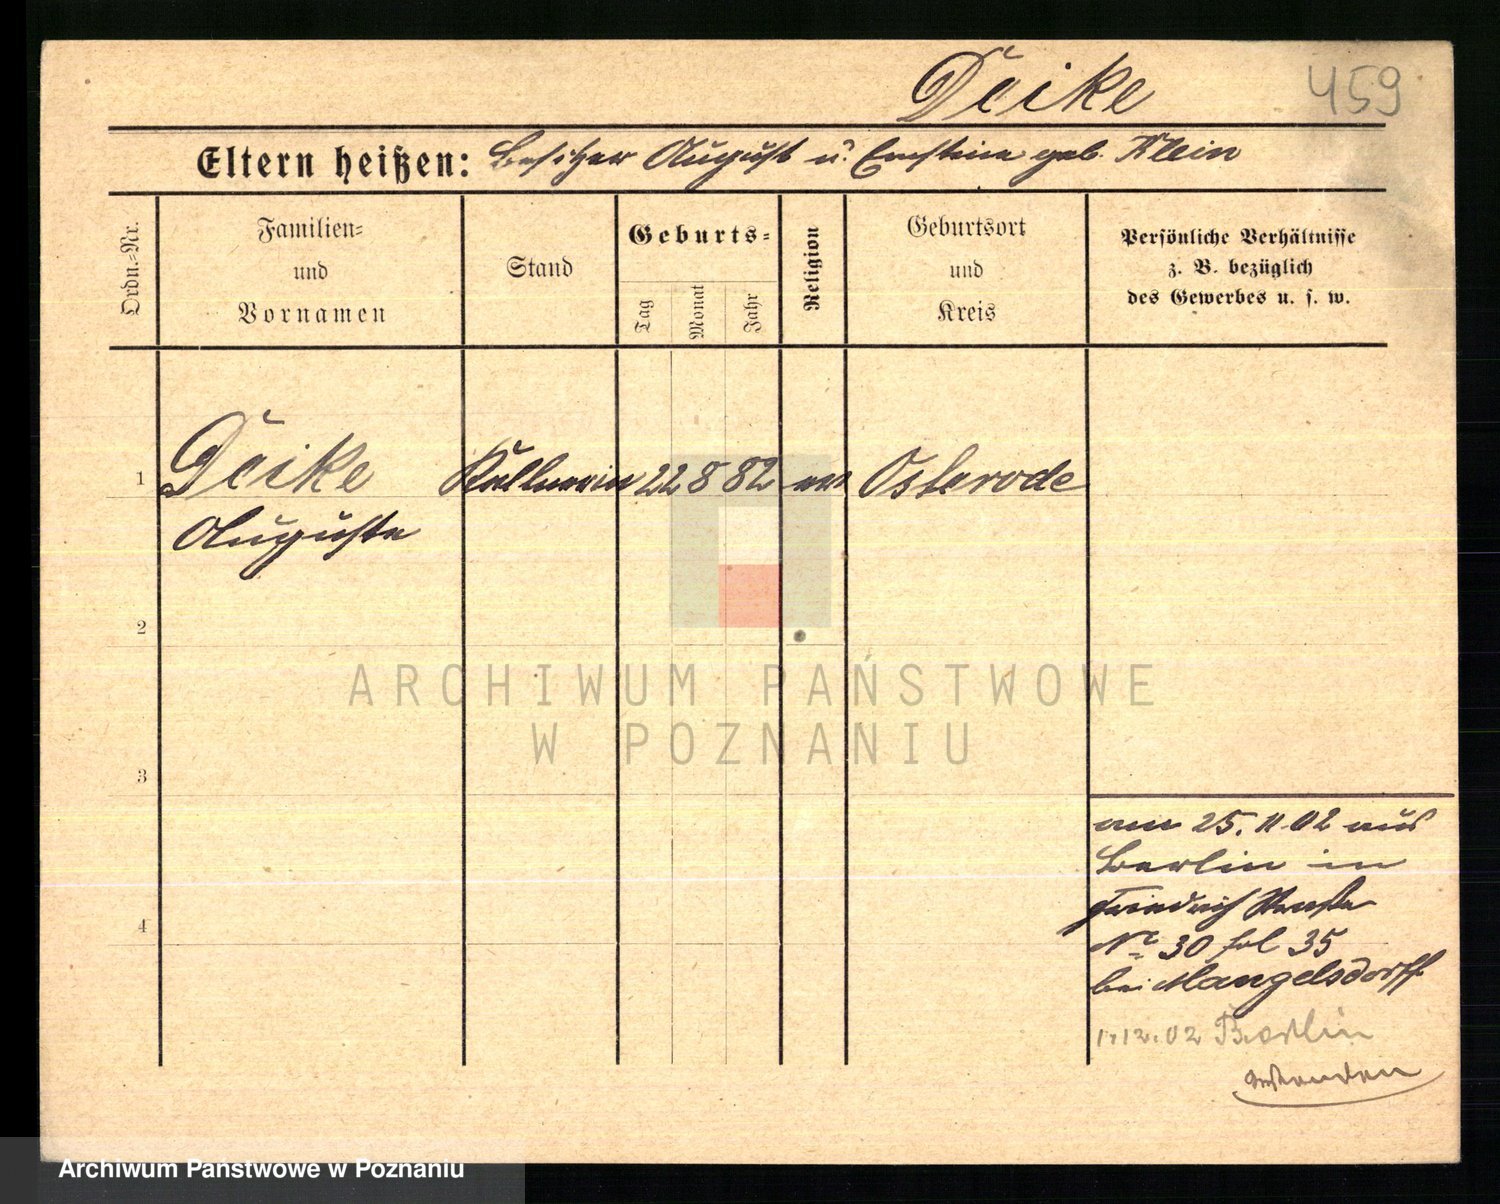 Deike
459
Eltern heißen: Besitzer August u. Ernstine geb. Klein
Ordn.-Nr.
Familien-
und
Vornamen
Stand
Geburts-
Tag
Monat
Jahr
Religion
Geburtsort
und
Kreis
Persönliche Verhältnisse
z. B. bezüglich
des Gewerbes u. s. w.
1 Deike Kellnerin 22 8 82 ev Osterode
Auguste
2
3
4
am 25. 11 02 aus
Berlin in
Friedrich Straße
No 30 fol 35
bei Mangelsdorff
1.12.02 Berlin
ARCHIWUM PAŃSTWOWE
W POZNANIU
Archiwum Państwowe w Poznaniu